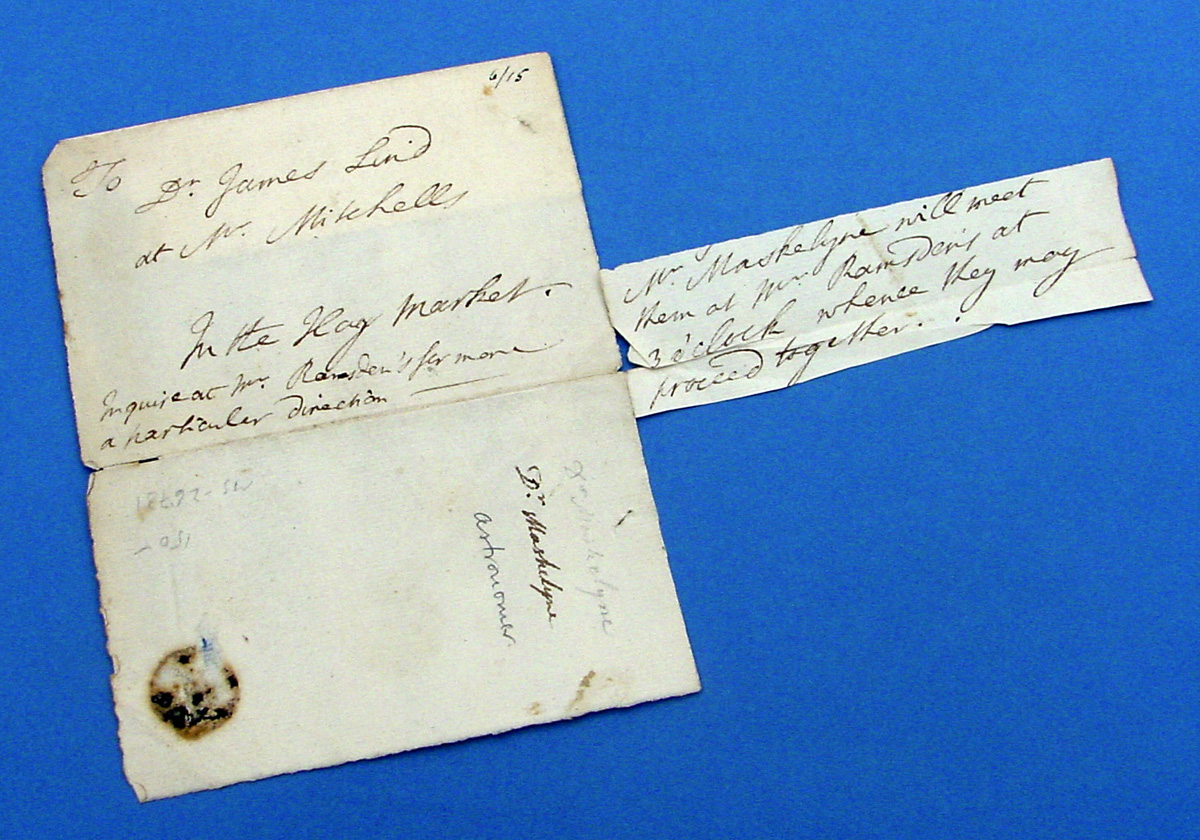 6/15
To Dr. James Lind
at Mr. Mitchells
In the Hay Market.
Inquire at Mr. Ramsden's for more
a particular direction
Mr. Maskelyne will meet
them at Mr. Ramsden's at
3 o'clock whence they may
proceed together.
Dr Maskelyne
Dr Maskelyne
astronomer.